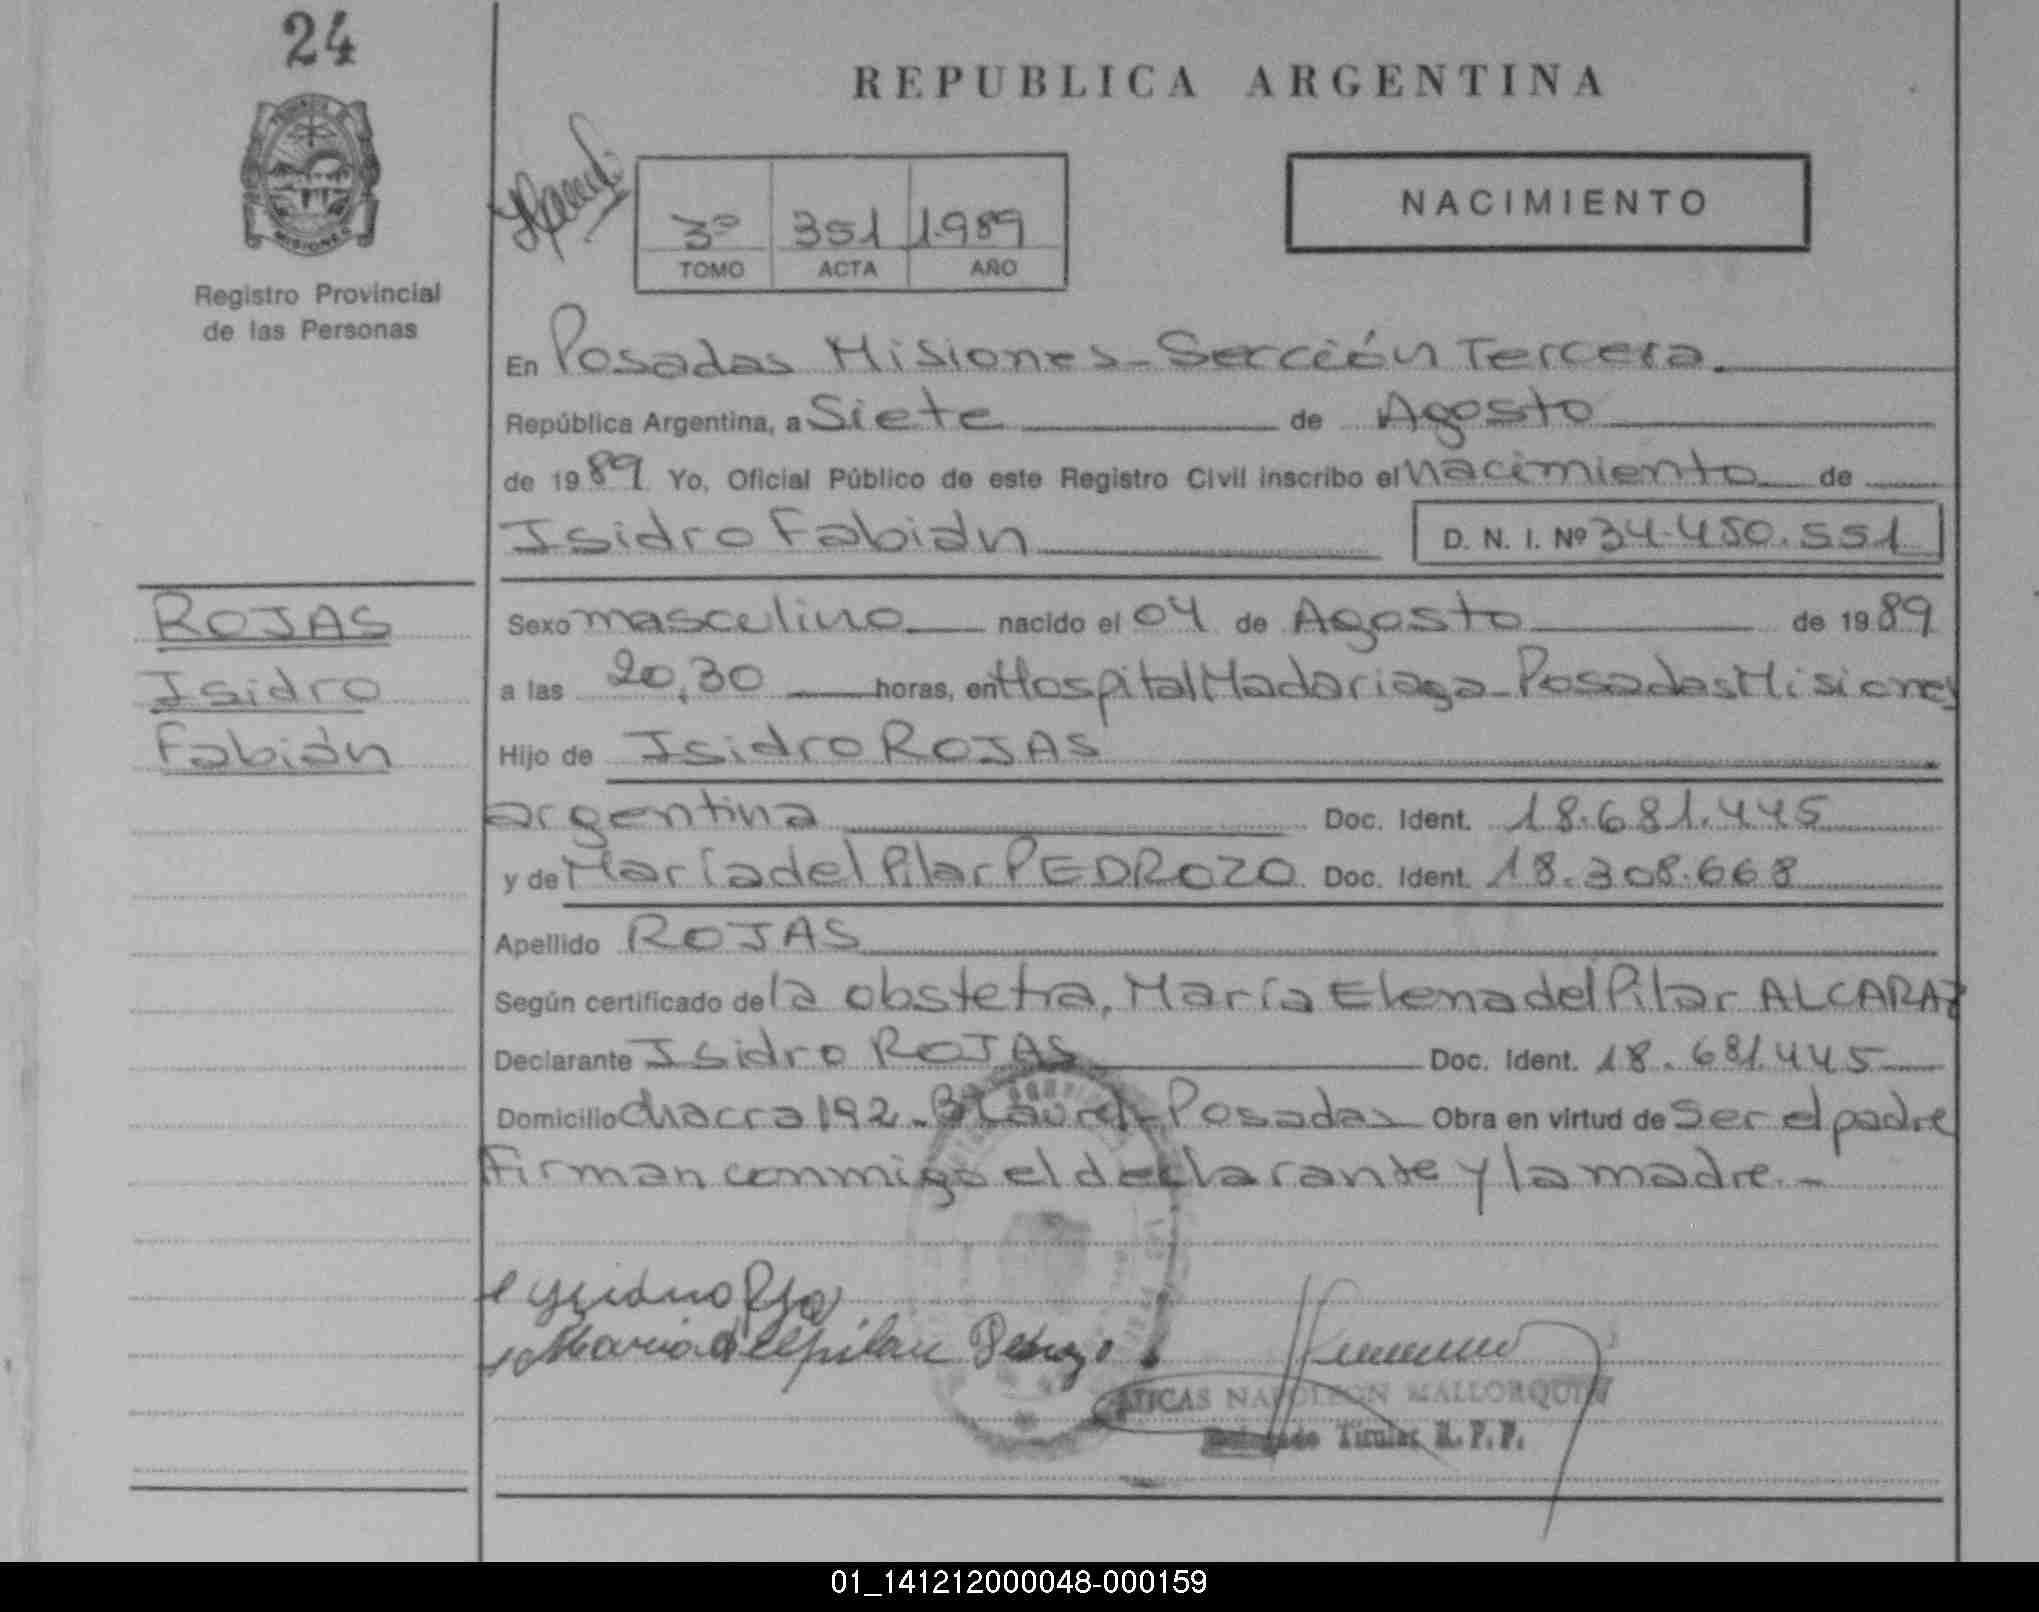 24
REPUBLICA ARGENTINA
MISIONES
Registro Provincial
de las Personas
3º 351 1.989
TOMO ACTA AÑO
NACIMIENTO
En Posadas Misiones - Sección Tercera.
República Argentina, a Siete de Agosto
de 1989 Yo, Oficial Público de este Registro Civil inscribo el nacimiento de
Isidro Fabián D. N. I. Nº 34.450.551
ROJAS
Isidro
Fabián
Sexo masculino nacido el 04 de Agosto de 1989
a las 20,30 horas, en Hospital Madariaga - Posadas Misiones
Hijo de Isidro ROJAS
argentina Doc. Ident. 18.681.445
y de María del Pilar PEDROZO Doc. Ident. 18.308.668
Apellido ROJAS
Según certificado de la obstetra, María Elena del Pilar ALCARAZ
Declarante Isidro ROJAS Doc. Ident. 18.681.445
Domicilio chacra 192 - Bº Laurel - Posadas Obra en virtud de Ser el padre
firman conmigo el declarante y la madre. -
Maria del pilar
NAPOLEON MALLORQUIN
Titular R. P. P.
01_141212000048-000159